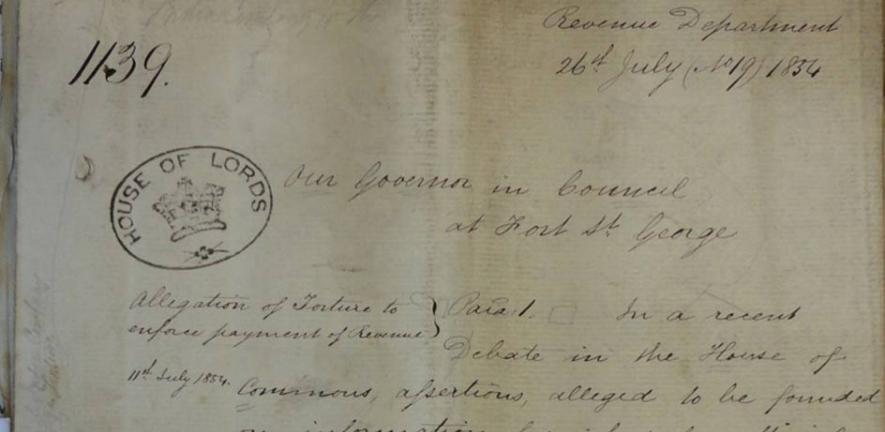 Revenue Department
1139.
26th July (No 19) 1854
HOUSE OF LORDS
Our Governor in Council
at Fort St. George
Allegation of Torture to
enforce payment of Revenue
Para 1. In a recent
Debate in the House of
11th July 1854.
Commons, assertions, alleged to be founded
on information